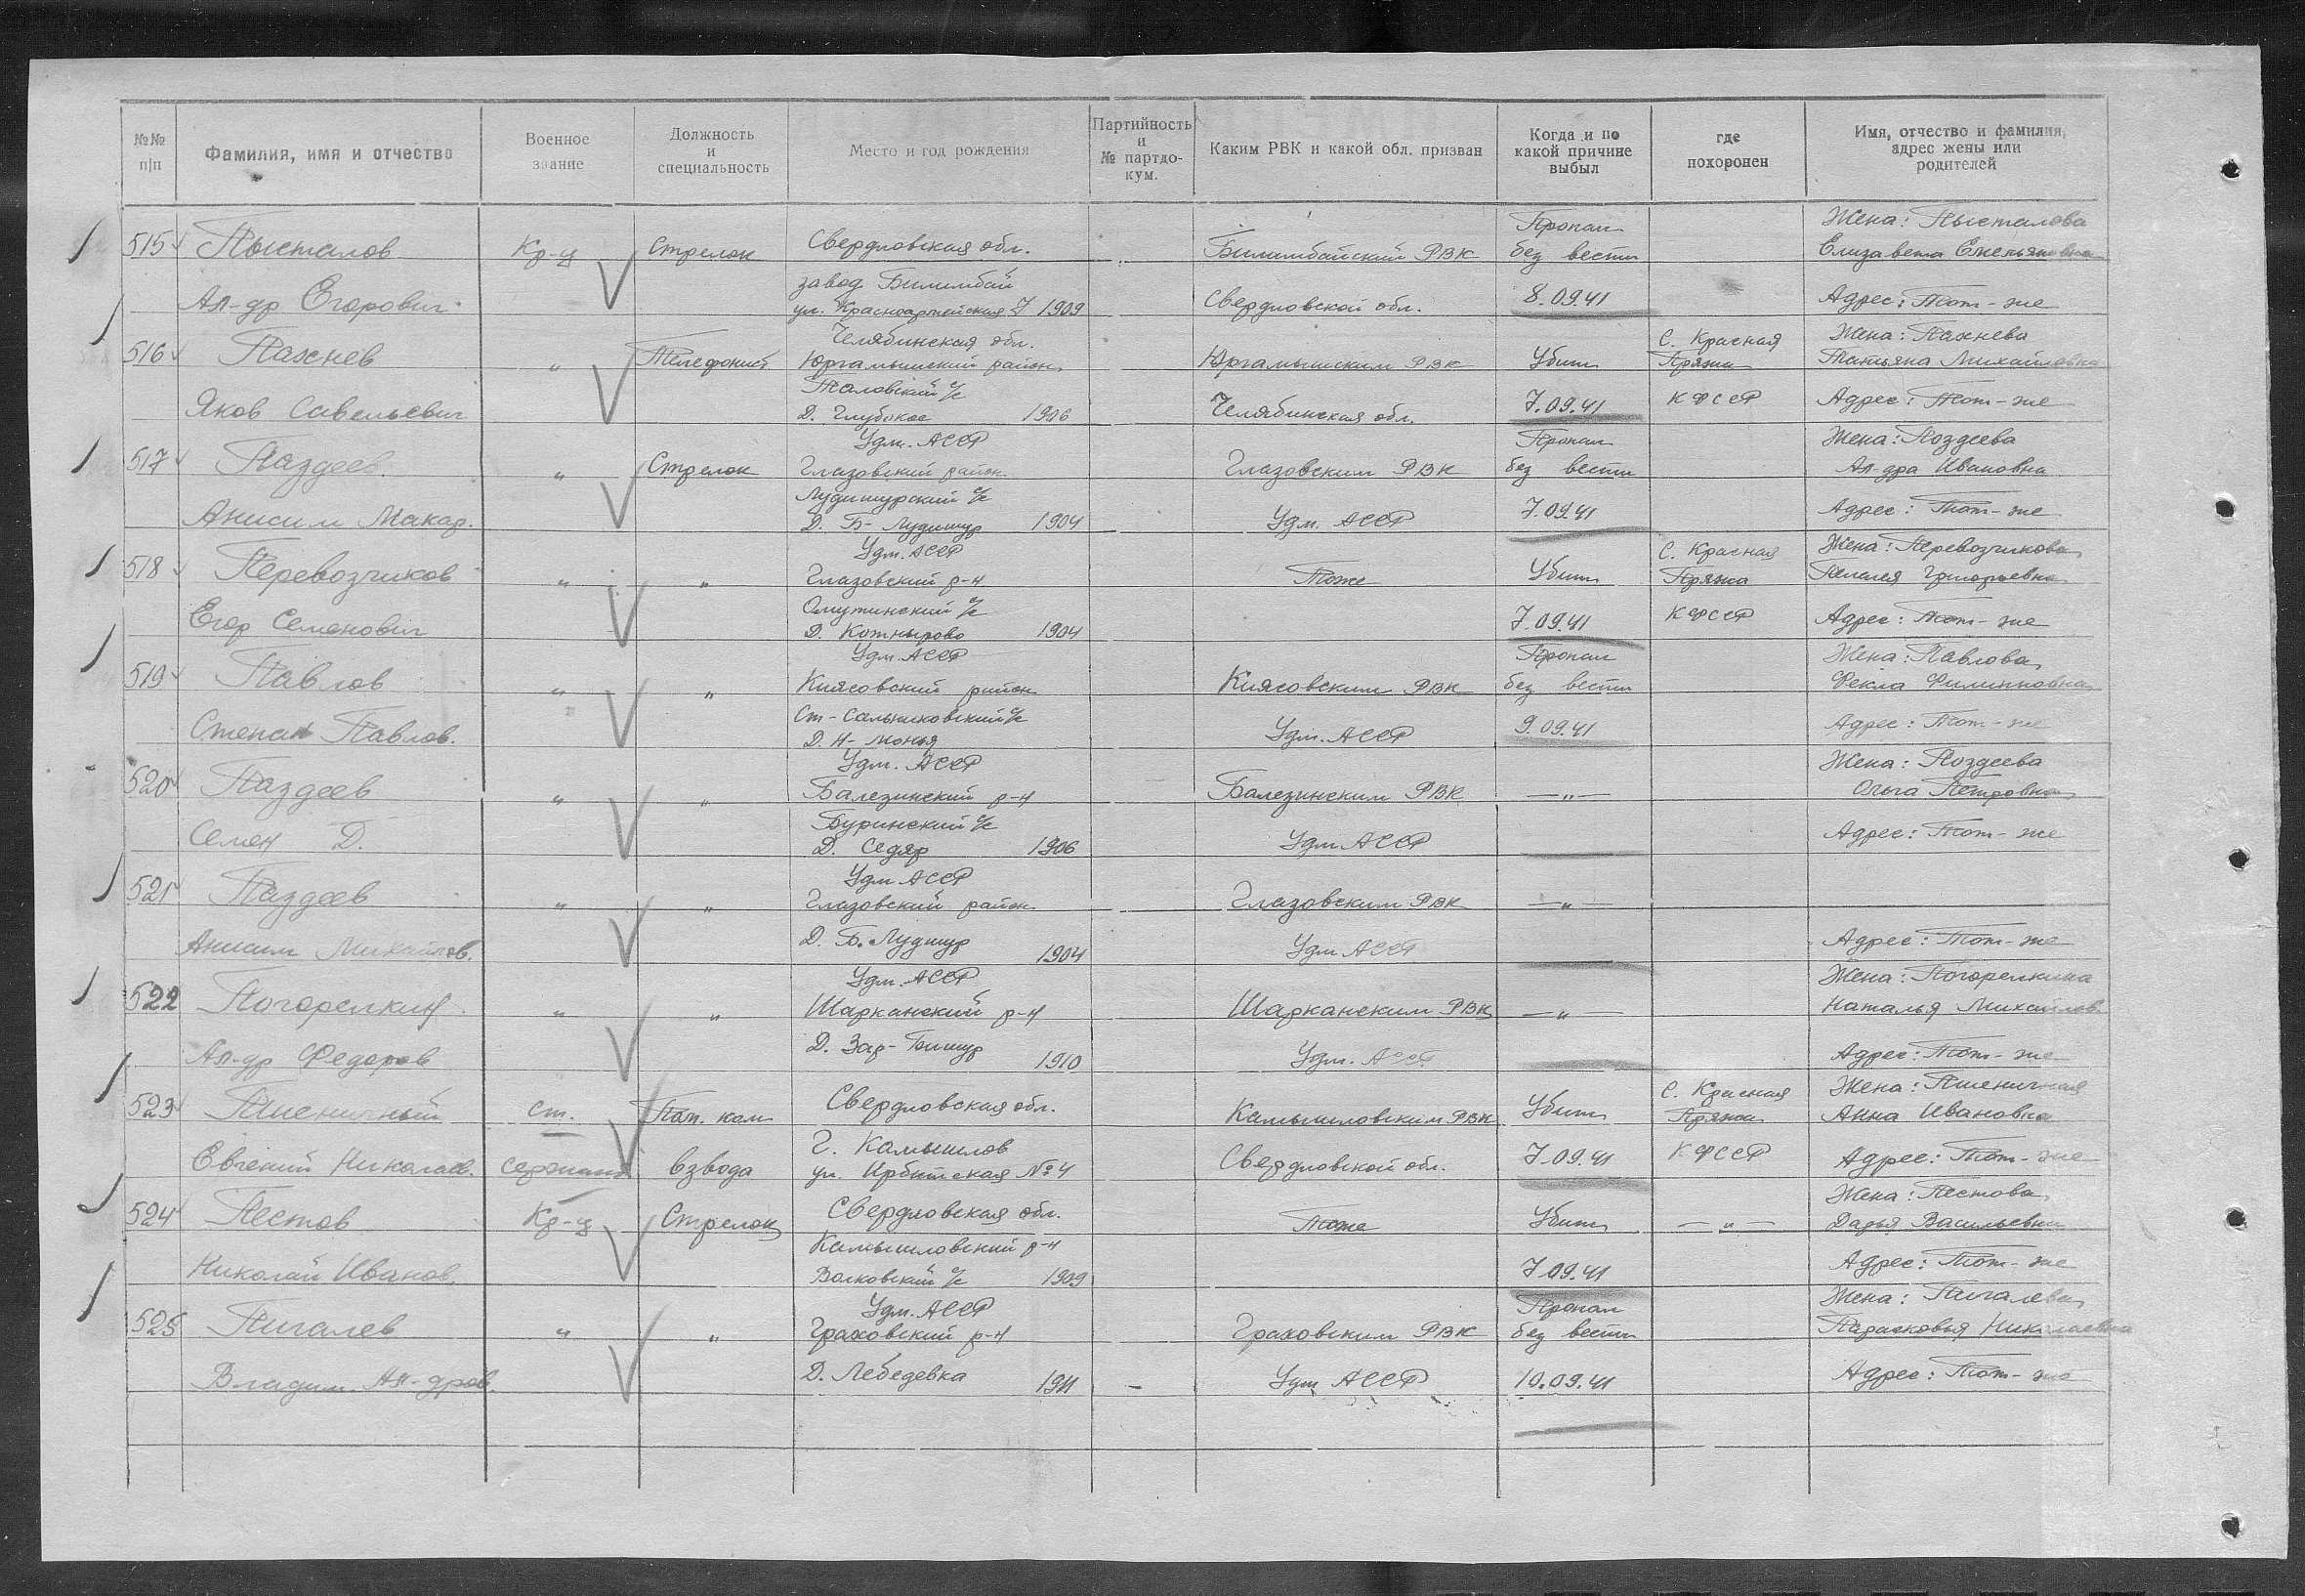 №№ п/п
Фамилия, имя и отчество
Военное звание
Должность и специальность
Место и год рождения
Партийность и № партдо-кум.
Каким РВК и какой обл. призван
Когда и по какой причине выбыл
где похоронен
Имя, отчество и фамилия, адрес жены или родителей
Пропал Жена: Пысталова
515 Пысталов Кр-ц Стрелок Свердловская обл. Билимбайский РВК без вести Елизавета Емельяновна
завод Билимбай
Ал-др Егорович ул. Красноармейская 7 1909 Свердловской обл. 8.09.41 Адрес: Тот-же
Челябинская обл. С. Красная Жена: Пахнева
516 Пахнев " Телефонист Юргамышский район Юргамышским РВК Убит Пряжа Татьяна Михайловна
Таловский с/с
Яков Савельевич Д. Глубокое 1906 Челябинская обл. 7.09.41 КФССР Адрес: Тот-же
Удм. АССР Пропал Жена: Поздеева
517 Паздеев " Стрелок Глазовский район Глазовским РВК без вести Ал-дра Ивановна
Лудишурский с/с
Анисим Макар. Д. Б-Лудишур 1904 Удм. АССР 7.09.41 Адрес: Тот-же
Удм. АССР С. Красная Жена: Перевозчикова
518 Перевозчиков " " Глазовский р-н Тоже Убит Пряжа Пелагея Григорьевна
Омутинский с/с
Егор Семенович Д. Котнырово 1904 7.09.41 КФССР Адрес: Тот-же
Удм. АССР Пропал Жена: Павлова
519 Павлов " " Киясовский район Киясовским РВК без вести Фекла Филипповна
Ст-Сальниковский с/с
Степан Павлов. Д. Н-Монья Удм. АССР 9.09.41 Адрес: Тот-же
Удм. АССР Жена: Поздеева
520 Паздеев " " Балезинский р-н Балезинским РВК —"— Ольга Петровна
Буринский с/с
Семен Д. Д. Седяр 1906 Удм АССР Адрес: Тот-же
Удм АССР
521 Паздеев " " Глазовский район Глазовским РВК —"—
Анисим Михайлов. Д. Б. Лудшур 1904 Удм АССР Адрес: Тот-же
Удм. АССР Жена: Погорелкина
522 Погорелкин " " Шарканский р-н Шарканским РВК —"— Наталья Михайлов.
Ал-др Федоров Д. Зар-Бишур 1910 Удм. АССР Адрес: Тот-же
Свердловская обл. С. Красная Жена: Пшеничная
523 Пшеничный Ст. Пом. ком Камышловским РВК Убит Пряжа Анна Ивановна
г. Камышлов
Евгений Николаев. сержант взвода ул. Ирбитская №4 Свердловской обл. 7.09.41 КФССР Адрес: Тот-же
Свердловская обл. Жена: Пестова
524 Пестов Кр-ц Стрелок Тоже Убит —"— Дарья Васильевна
Камышловский р-н
Николай Иванов. Волковский с/с 1909 7.09.41 Адрес: Тот-же
Удм. АССР Пропал Жена: Пигалева
525 Пигалев " " Граховский р-н Граховским РВК без вести Парасковья Николаевна
Владим. Ал-дров. Д. Лебедевка 1911 - Удм АССР 10.09.41 Адрес: Тот-же